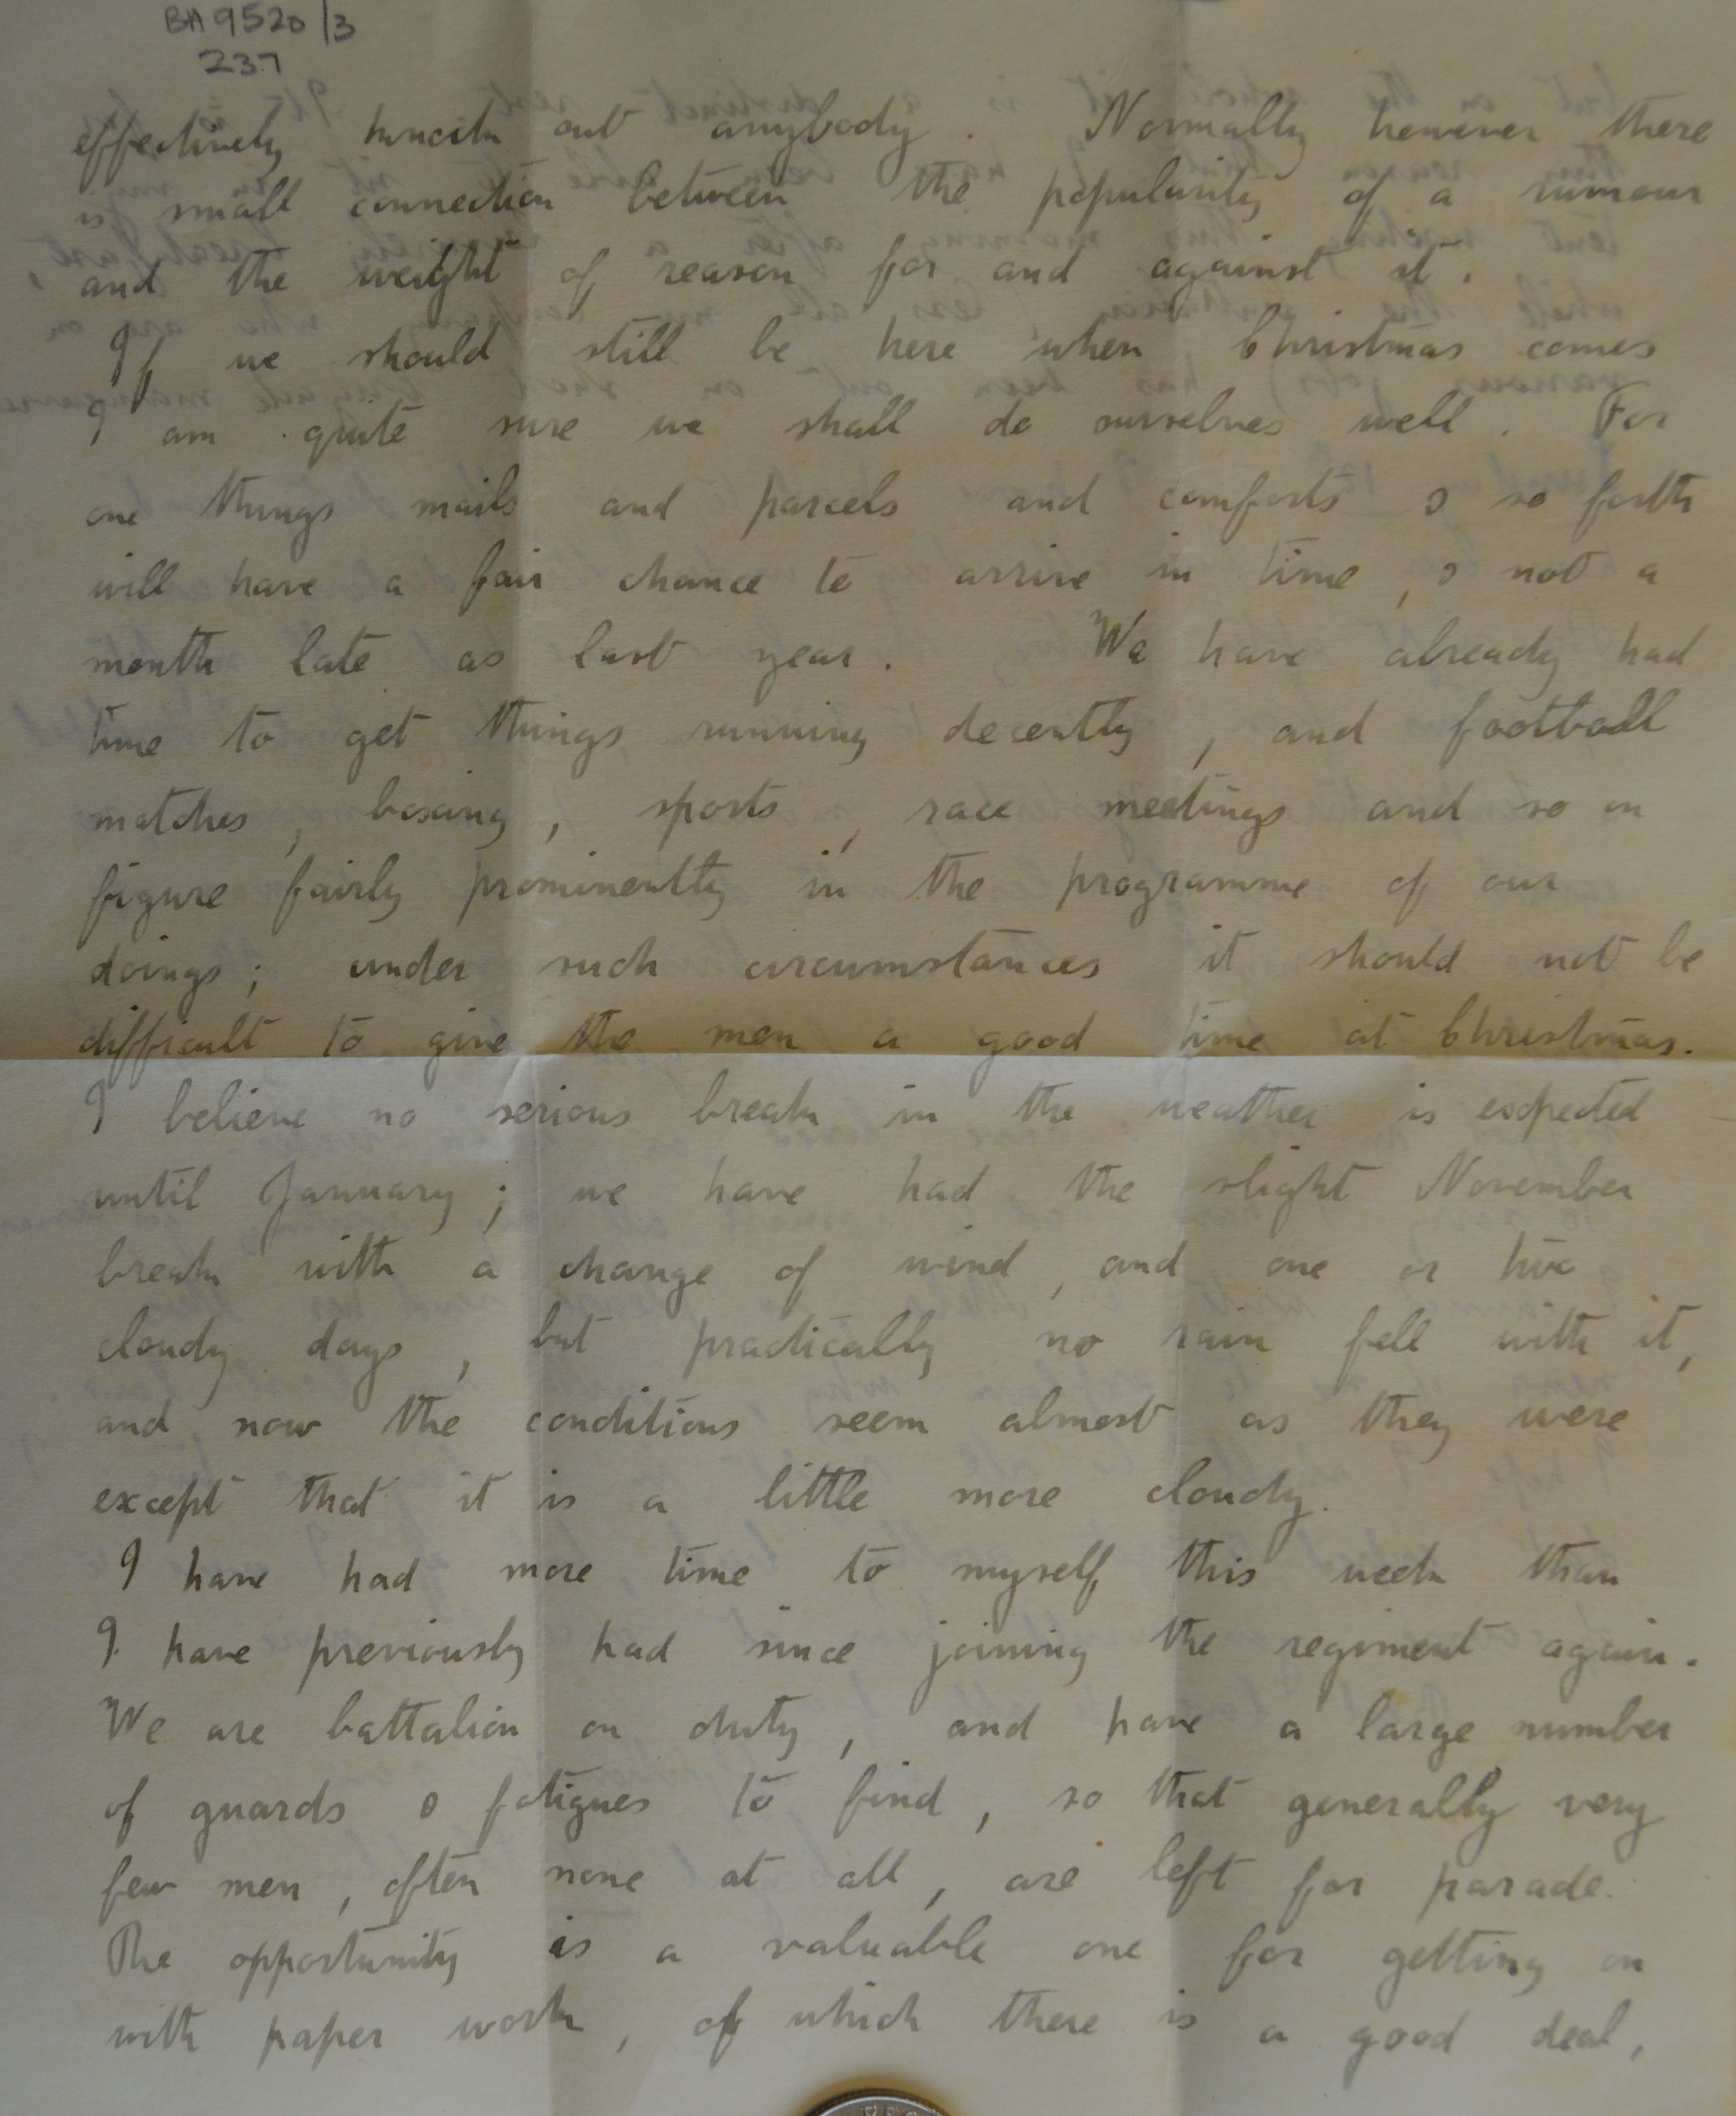 BA 9520/3
237
effectively knock out anybody. Normally however there
is small connection between the popularity of a rumour
and the weight of reason for and against it.
If we should still be here when Christmas comes
I am quite sure we shall do ourselves well. For
one things mails and parcels and comforts & so forth
will have a fair chance to arrive in time, & not a
month late as last year. We have already had
time to get things running decently, and football
matches, boxing, sports, race meetings and so on
figure fairly prominently in the programme of our
doings; under such circumstances it should not be
difficult to give the men a good time at Christmas.
I believe no serious break in the weather is expected
until January; we have had the slight November
break with a change of wind, and one or two
cloudy days, but practically no rain fell with it,
and now the conditions seem almost as they were
except that it is a little more cloudy.
I have had more time to myself this week than
I have previously had since joining the regiment again.
We are battalion on duty, and have a large number
of guards & fatigues to find, so that generally very
few men, often none at all, are left for parade.
The opportunity is a valuable one for getting on
with paper work, of which there is a good deal,